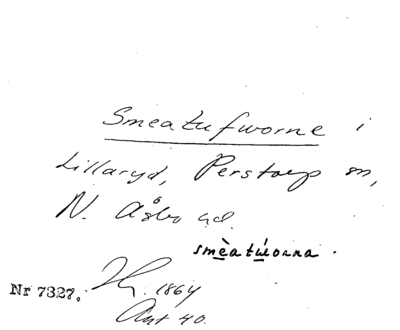 Smeatufworne i
Lillaryd, Perstorp sn,
N. Åsbo hd.
smèatúworna.
Nr 7327. 1864
Ant 40.